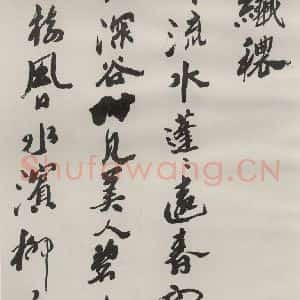 纖穠
流水蓬〻遠春
深谷时見美人碧
樹風日水濱柳
Shufawang.CN